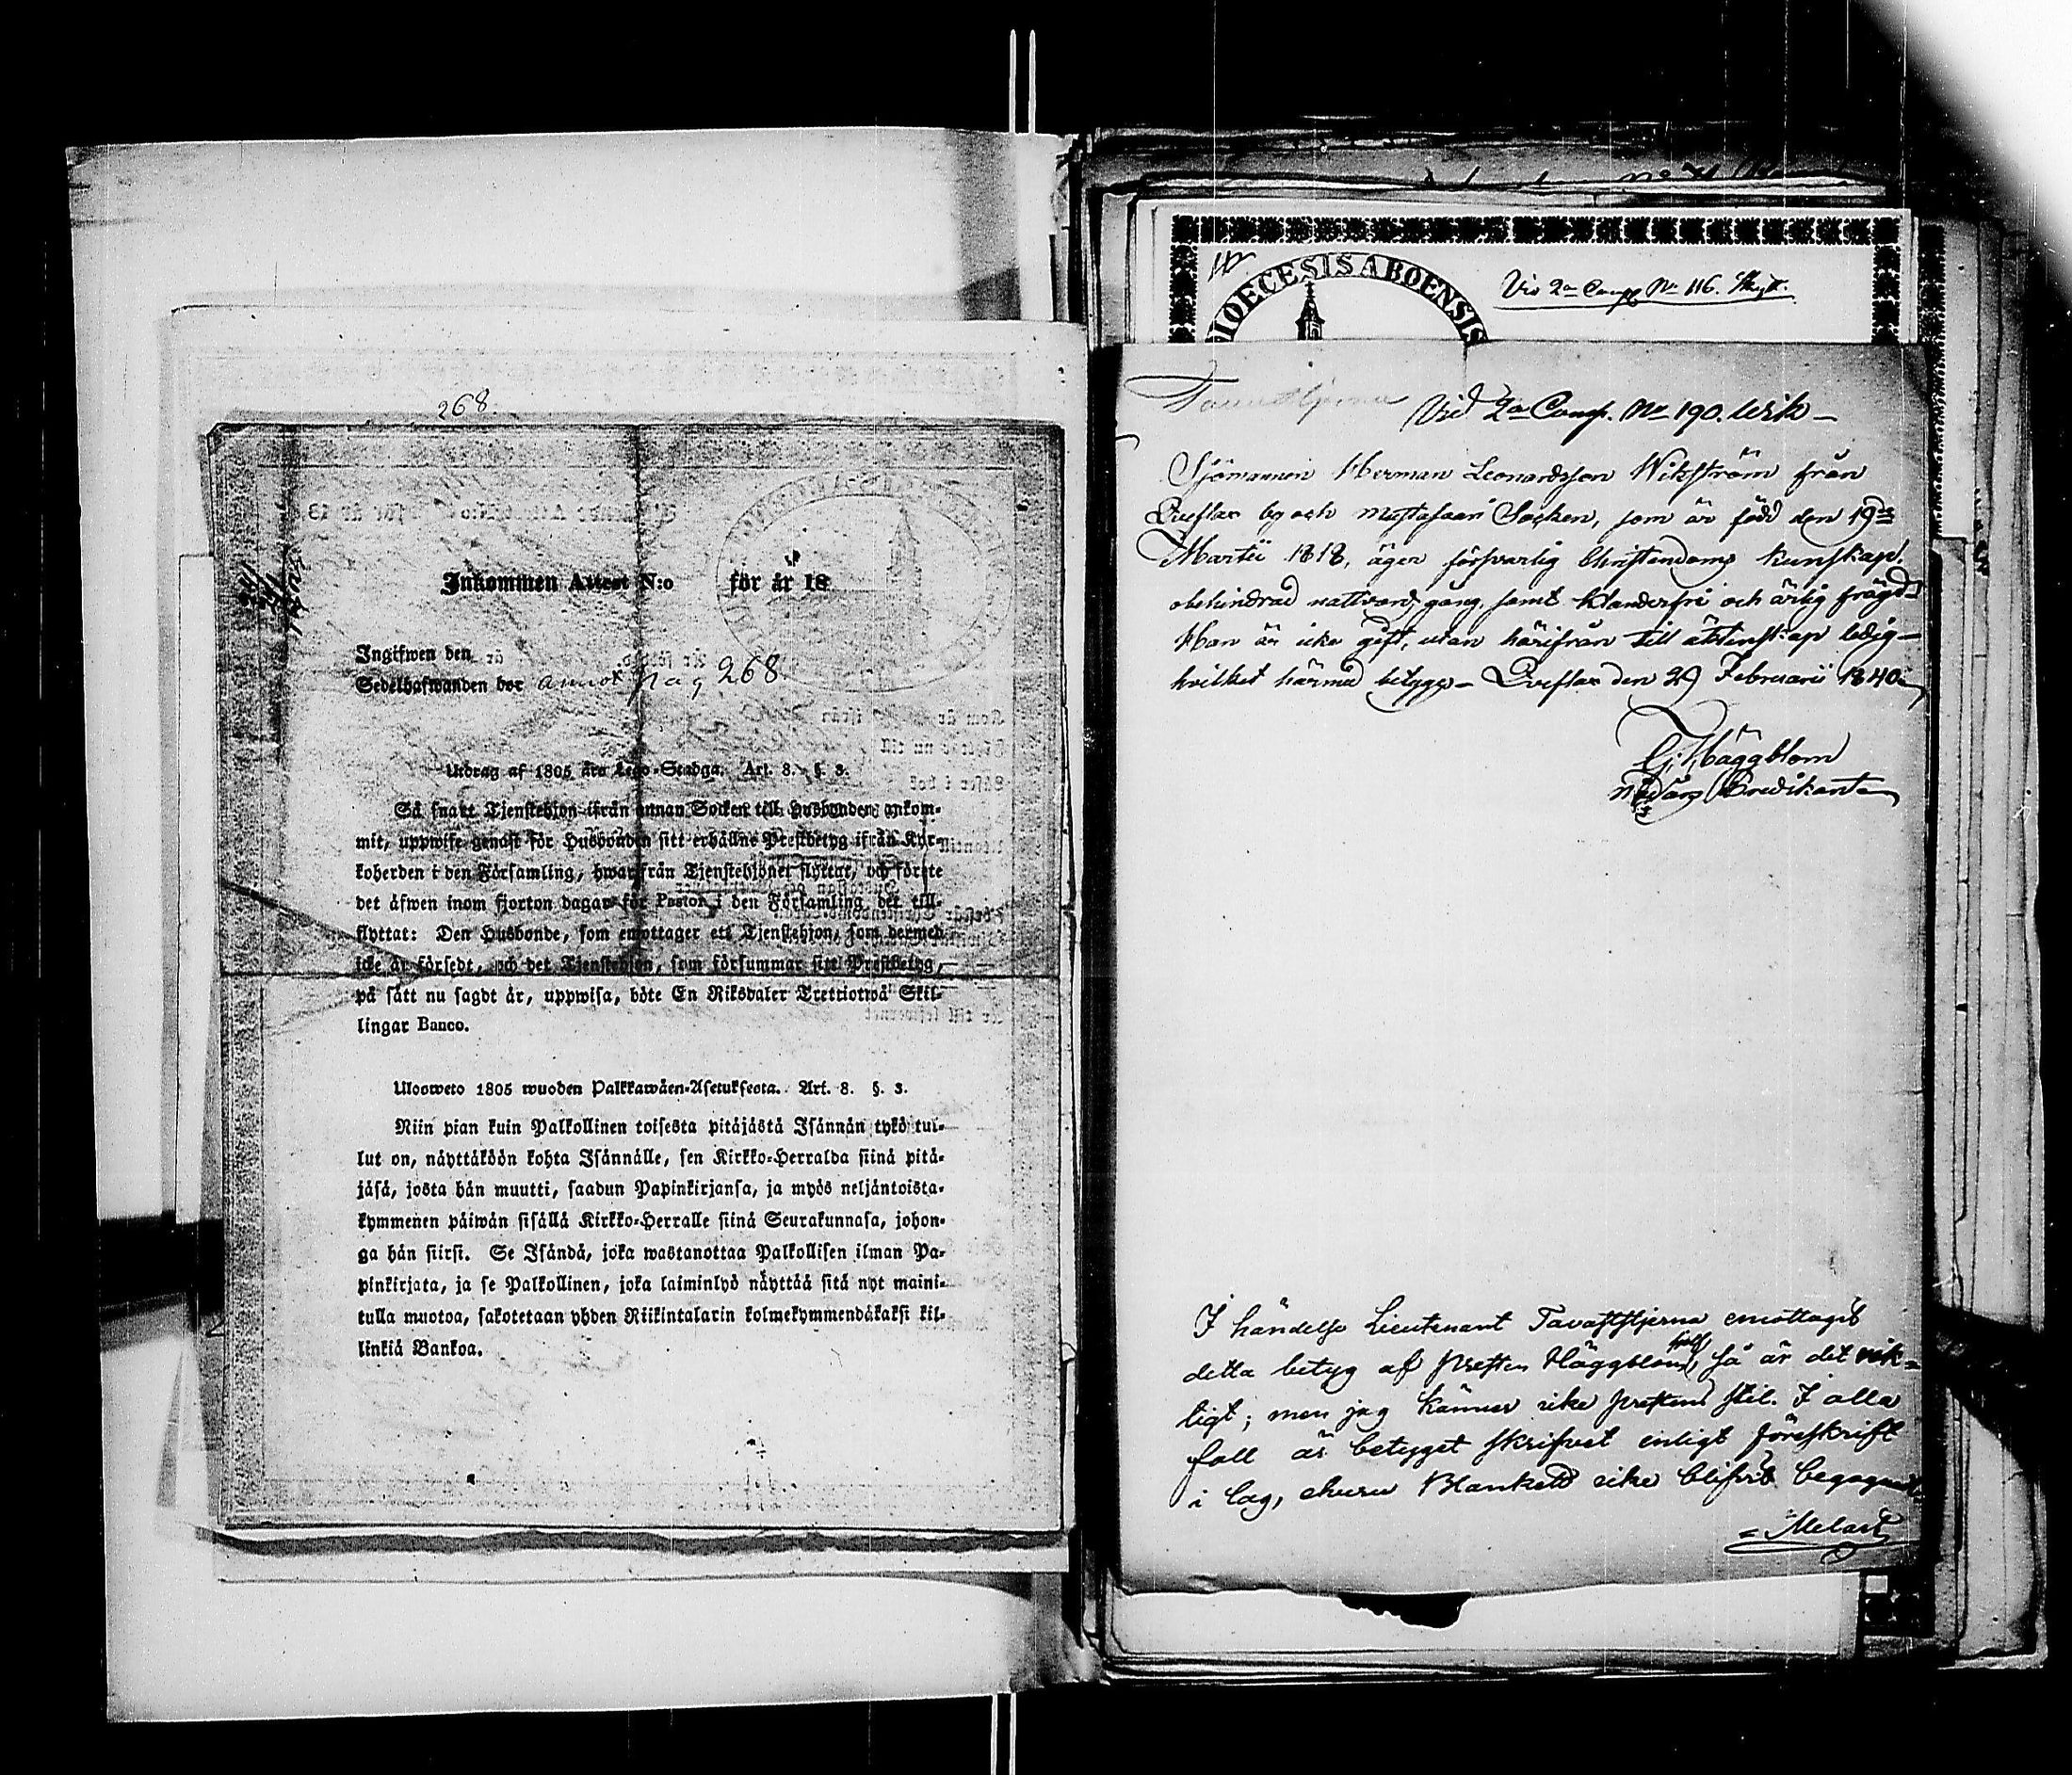 268.
Inkommen Attest N:o för år 18
Ingifwen den
Sedelhafwanden bor annot pag 268.
Utdrag af 1805 års Lego-Stadga. Art. 8. §. 3.
Så snart Tjenstehjon ifrån annan Socken till Husbonden ankom-
mit, uppwise genast för Husbonden sitt erhållne Prestbetyg ifrån Kyr-
koherden i den Församling, hwarifrån Tjenstehjonet flyttat, och förete
det äfwen inom fjorton dagar för Pastor i den Församling det till-
flyttat: Den Husbonde, som emottager ett Tjenstehjon, som dermed
icke är försedt, och det Tjenstehjon, som försummar sitt Prestbetyg,
på sätt nu sagdt är, uppwisa, böte En Riksdaler Trettiotwå Skil-
lingar Banco.
Ulosweto 1805 wuoden Palkkawäen-Asetuksesta. Art. 8. §. 3.
Niin pian kuin Palkollinen toisesta pitäjästä Isännän tykö tul-
lut on, näyttäköön kohta Isännälle, sen Kirkko-Herralda siinä pitä-
jäsä, josta hän muutti, saadun Papinkirjansa, ja myös neljäntoista-
kymmenen päiwän sisällä Kirkko-Herralle siinä Seurakunnasa, johon-
ga hän siirsi. Se Isändä, joka wastanottaa Palkollisen ilman Pa-
pinkirjata, ja se Palkollinen, joka laiminlyö näyttää sitä nyt maini-
tulla muotoa, sakotetaan yhden Riikintalarin kolmekymmendäkaksi kil-
linkiä Bankoa.
DIOECESIS ABOENSIS
Vid 2a Comp Nr 116. Skytt.
Vid 2a Comp. Nr 190. Wik
Sjömannen Herman Leonardsson Wikström från
Qveflax by och Mustasaari Socken, som är född den 19de
Martii 1818, äger försvarlig Christendoms kunskap,
obehindrad nattvardsgång, samt klanderfri och ärlig frägd
Han är icke gift, utan härifrån till äktenskap ledig
hvilket härmed betygas. Qveflax den 29 Februarii 1840.
G. Häggblom
Nådårs Predikant
I händelse Lieutenant Tavaststjerna emottagit
detta betyg af presten Häggblom sjelf, så är det rik-
tigt; men jag känner icke prestens stil. I alla
fall är betyget skrifvet enligt föreskrift
i lag, ehuru Blankett icke blifvit begagnad.
Melart